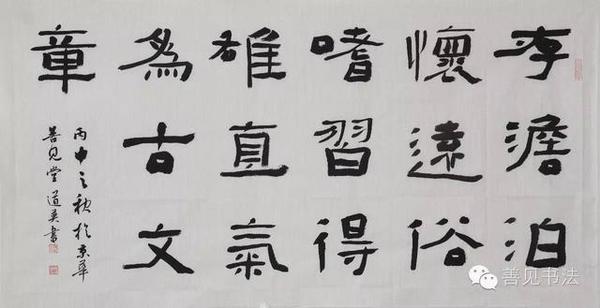 存澹泊
懷遠俗
嗜習得
雄直氣
為古文
章
丙申之秋於京華
善見堂道英書
善见书法